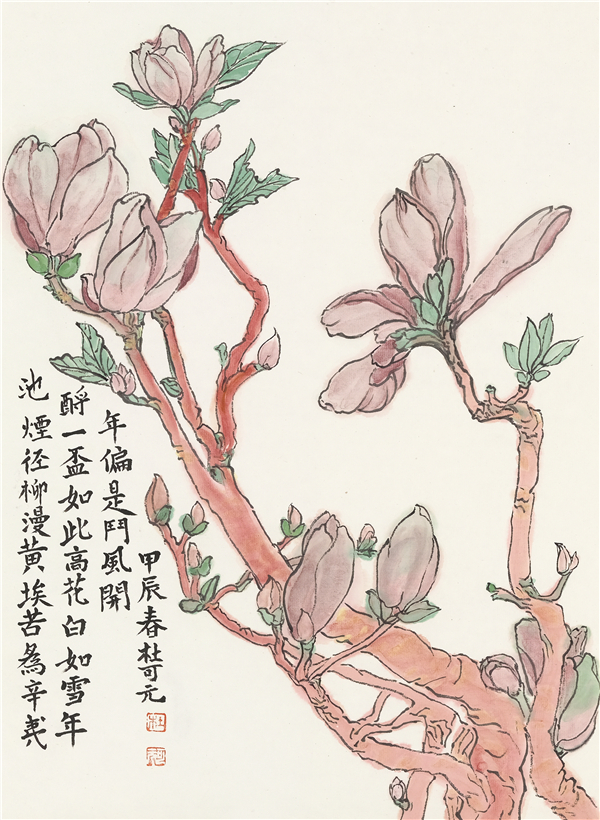 池煙径柳漫黄埃苦為辛夷
酹一盃如此高花白如雪年
年偏是鬥風開
甲辰春杜可元